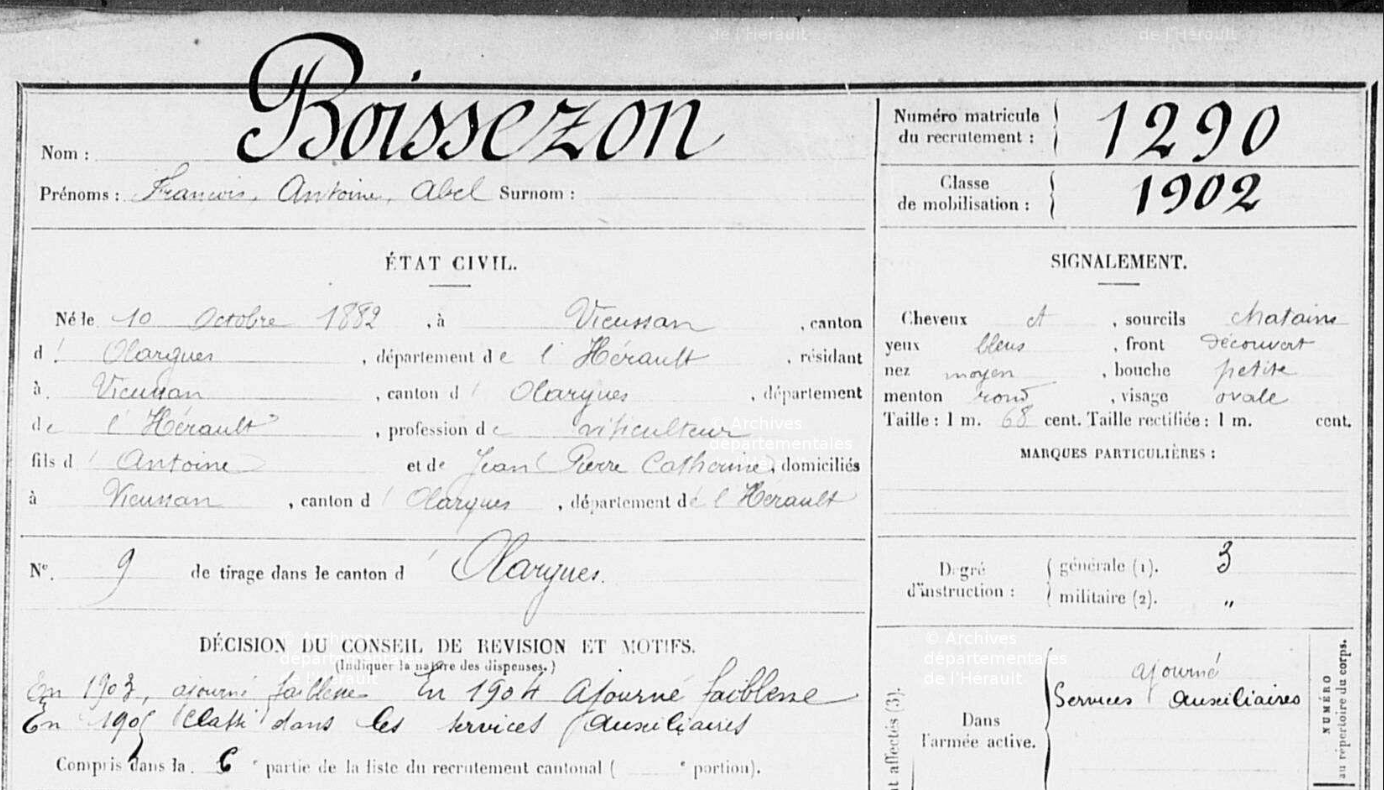 de l'Hérault
de l'Hérault
Nom : Boissezon
Prénoms : Francois, Antoine, Abel Surnom :
ÉTAT CIVIL.
Né le 10 Octobre 1882, à Vieussan, canton
d' Olargues, département de l'Hérault, résidant
à Vieussan, canton d'Olargues, département
de l'Hérault, profession de viticulteur
fils d'Antoine et de Jean Pierre Catherine, domiciliés
à Vieussan, canton d'Olargues, département de l'Hérault
N° 9 de tirage dans le canton d'Olargues.
DÉCISION DU CONSEIL DE REVISION ET MOTIFS.
(Indiquer la nature des dispenses.)
En 1903, ajourné faiblesse En 1904 Ajourné faiblesse
En 1905 Classé dans les services Auxiliaires
Compris dans la 6e partie de la liste du recrutement cantonal ( e portion).
Numéro matricule
du recrutement : 1290
Classe
de mobilisation : 1902
SIGNALEMENT.
Cheveux ct, sourcils chatains
yeux bleus, front découvert
nez moyen, bouche petite
menton rond, visage ovale
Taille : 1 m. 68 cent. Taille rectifiée : 1 m. cent.
MARQUES PARTICULIÈRES :
Degré
d'instruction :
générale (1). 3
militaire (2). "
Dans
l'armée active.
ajourné
Services Auxiliaires
NUMÉRO
au répertoire du corps.
affectés (3).
© Archives
départementales
de l'Hérault
© Archives
départementales
de l'Hérault
© Archives
départementales
de l'Hérault